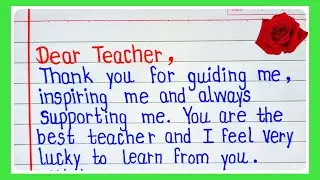 Dear Teacher,
Thank you for guiding me,
inspiring me and always
supporting me. You are the
best teacher and I feel very
lucky to learn from you.